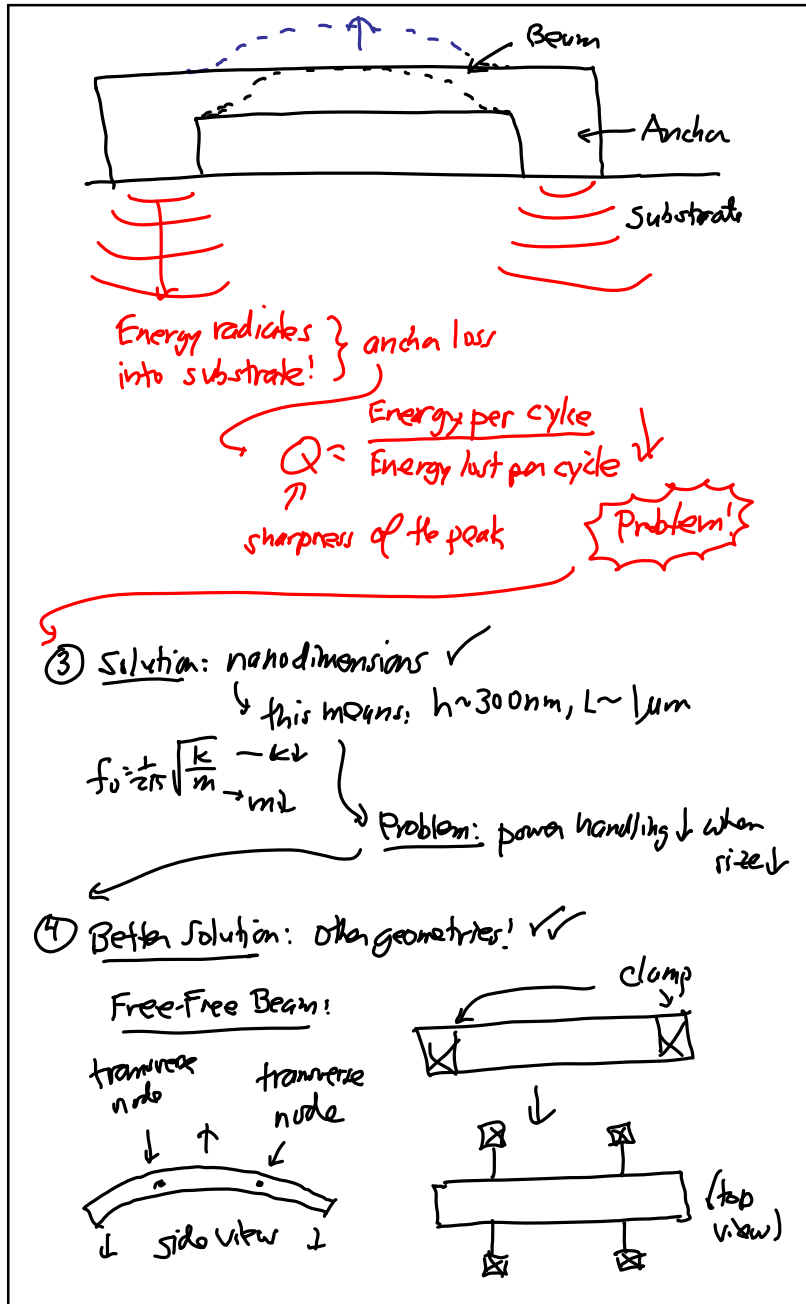 Beam
Anchor
Substrate
Energy radiates
into substrate! } anchor loss
Q = Energy per cylce
Energy lost per cycle ↓
sharpness of the peak
Problem!
③ Solution: nanodimensions ✓
↳ this means: h~300nm, L~1μm
f₀ = 1/2π √(k/m) – k↓
→ m↓
Problem: power handling ↓ when
size↓
④ Better Solution: Other geometries! ✓✓
clamp
Free-Free Beam:
transverse
node
transverse
node
side view
(top
view)